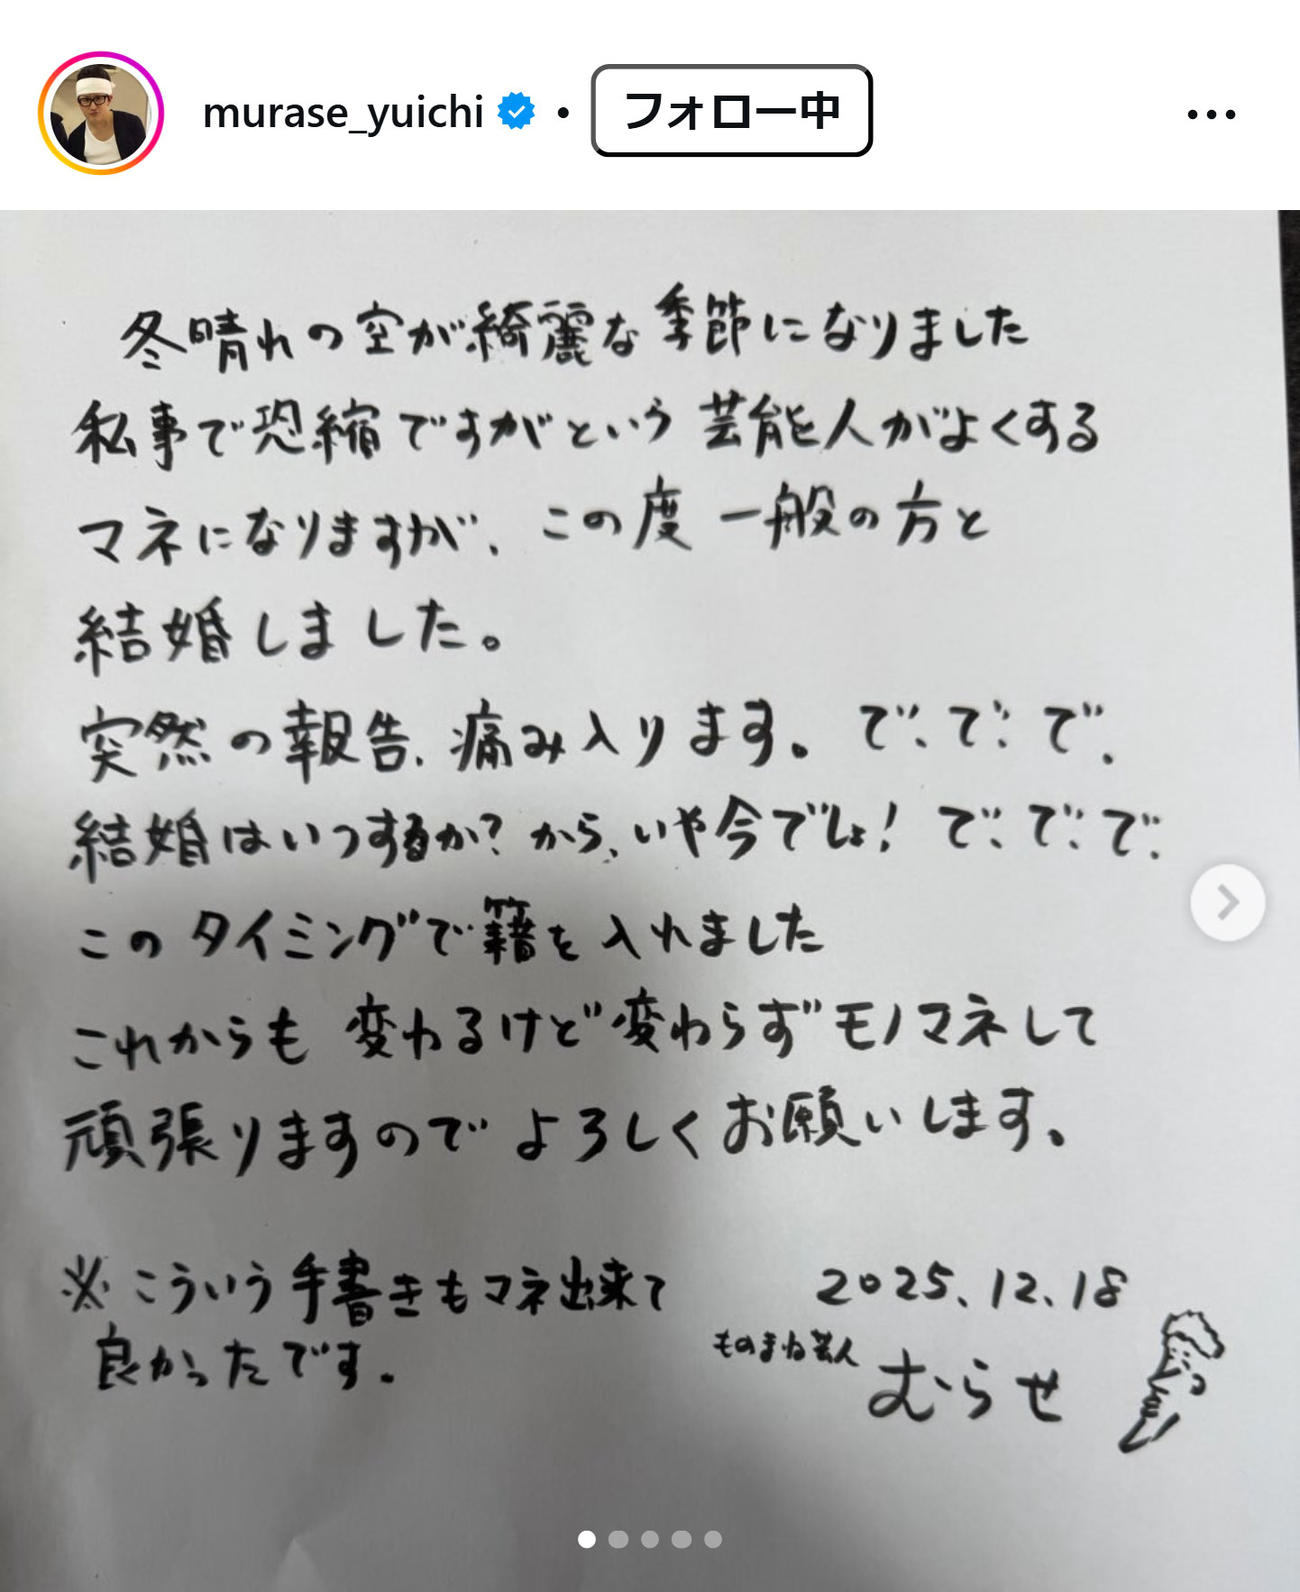 murase_yuichi • フォロー中
冬晴れの空が綺麗な季節になりました
私事で恐縮ですがという芸能人がよくする
マネになりますが、この度一般の方と
結婚しました。
突然の報告、痛み入ります。で、で、で、
結婚はいつするか?から、いや今でしょ!で、で、で、
このタイミングで籍を入れました
これからも変わるけど変わらずモノマネして
頑張りますのでよろしくお願いします。
※こういう手書きもマネ出来て
良かったです。
2025.12.18
ものまね芸人 むらせ